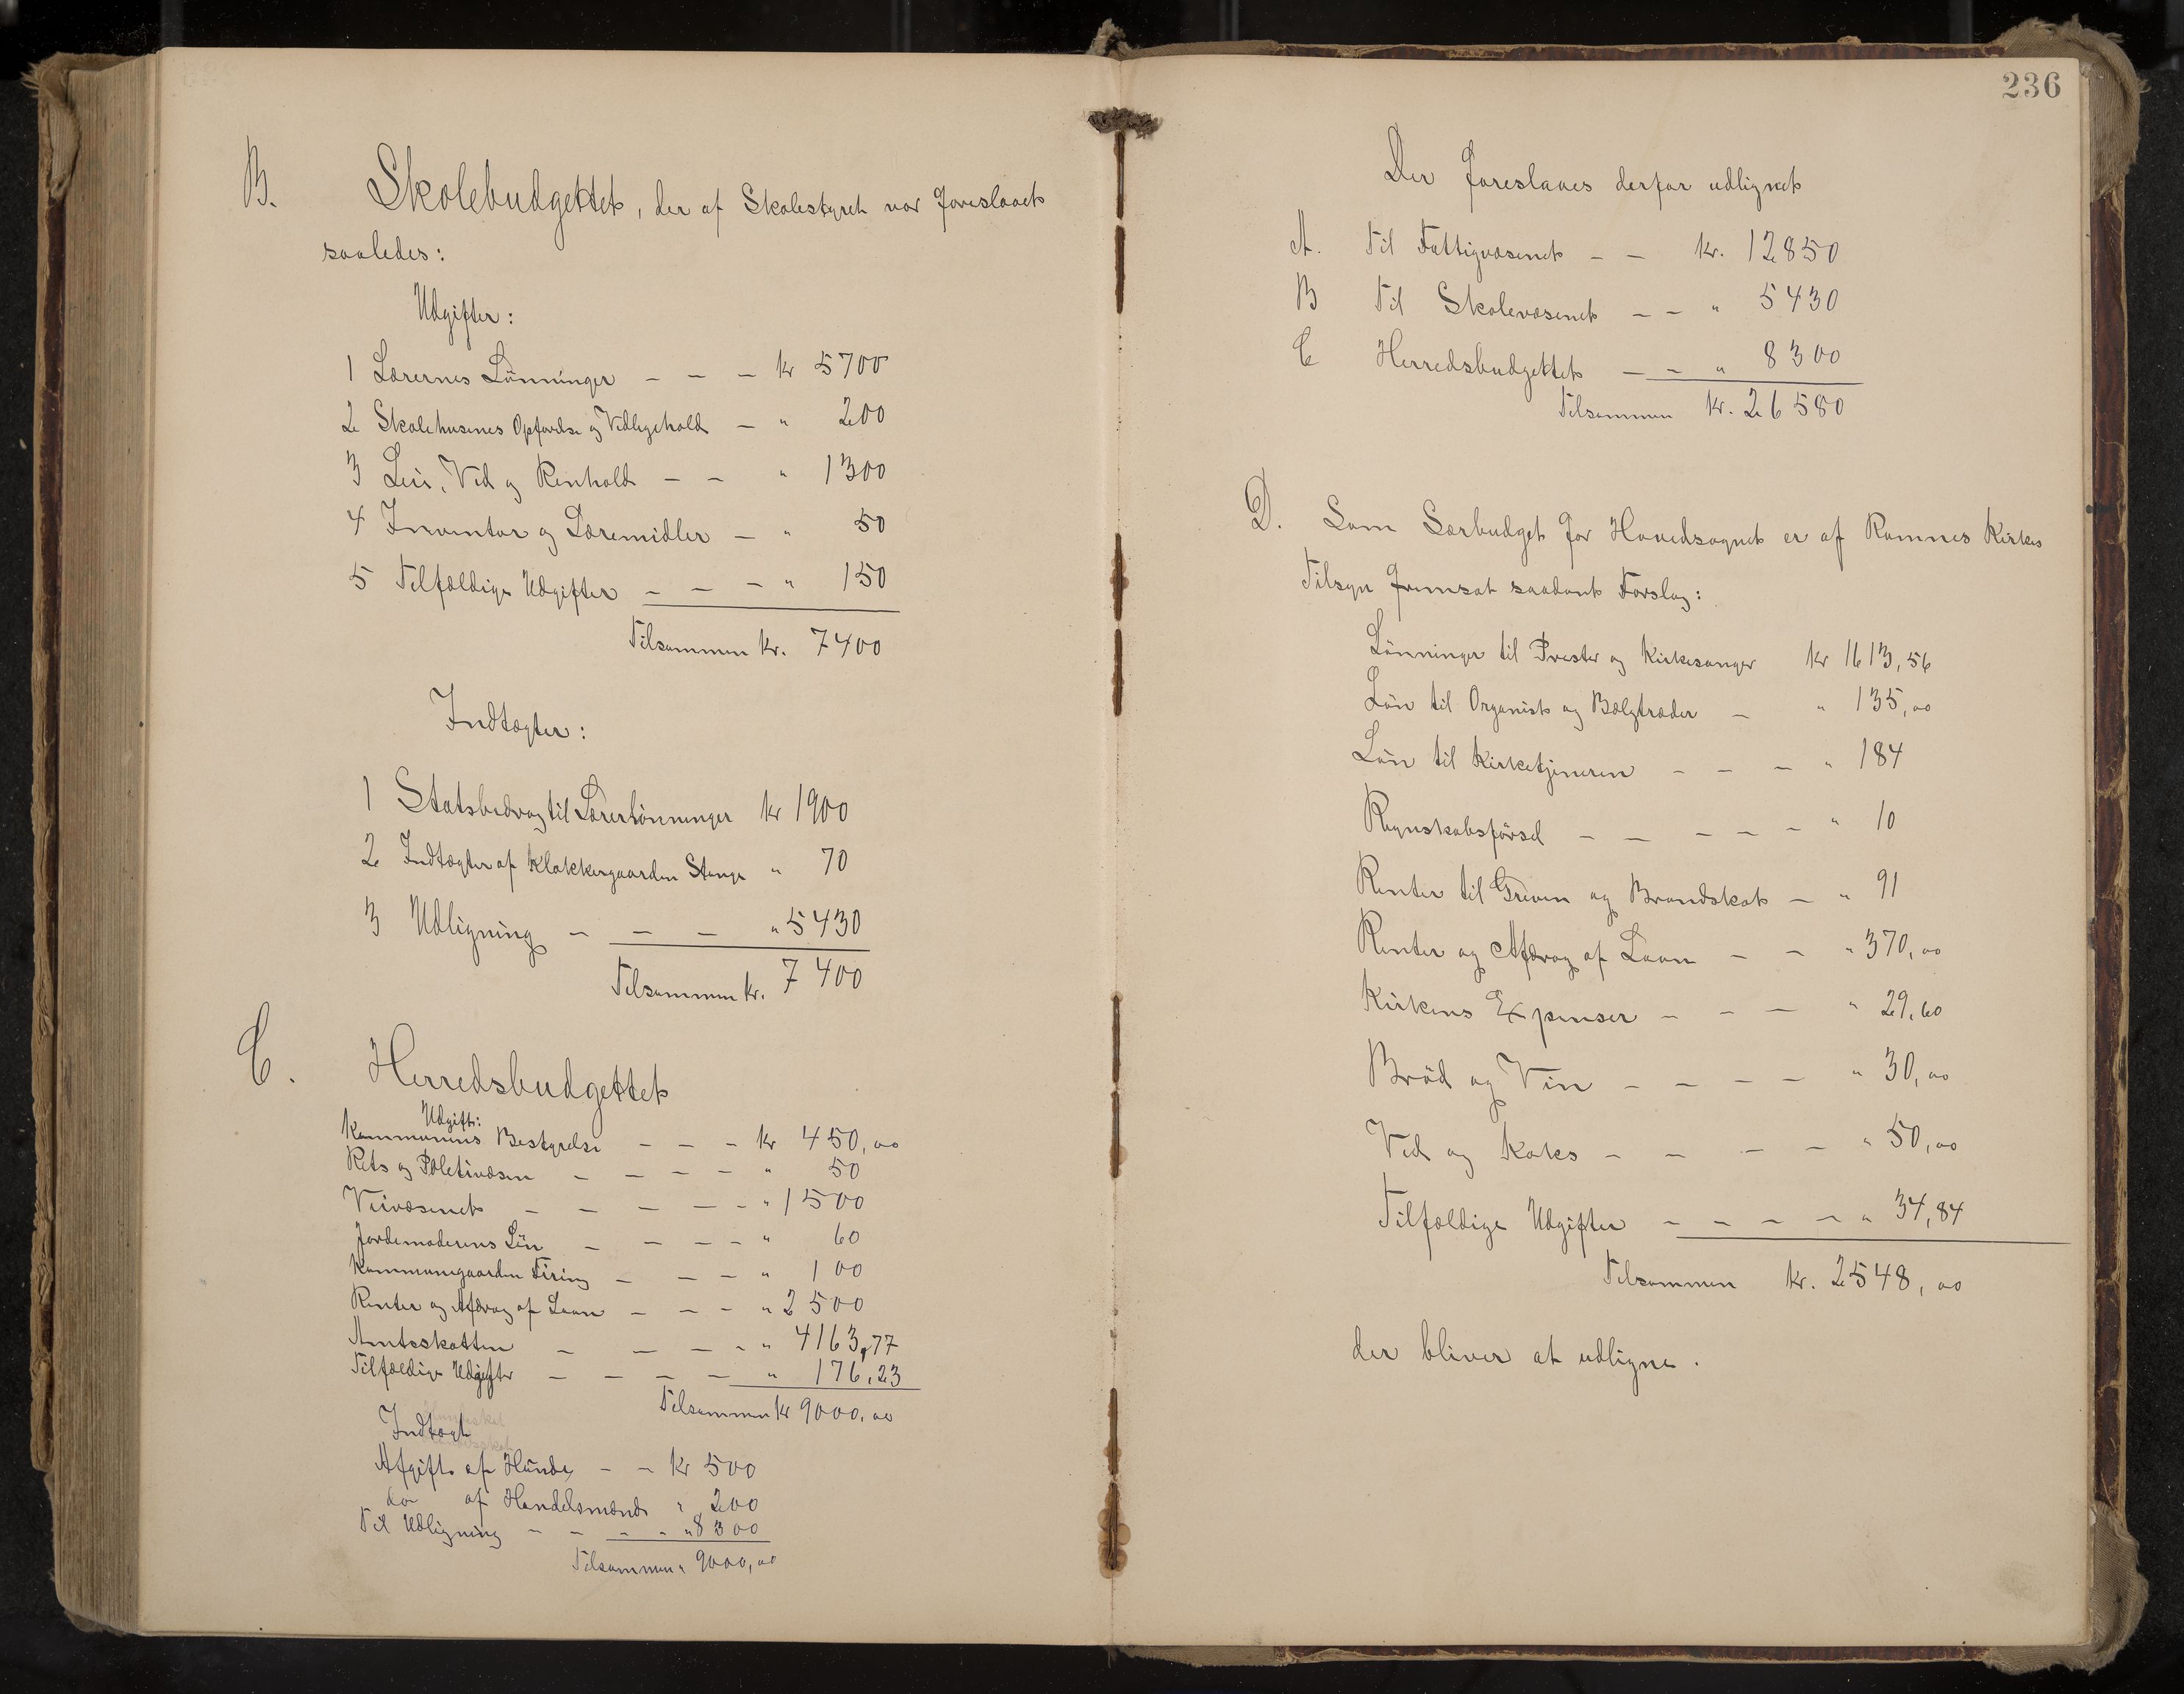 B. Skolebudgettet, der af Skolestyret var foreslaaet
saaledes:
Udgifter:
1 Lærernes Lönninger - - - kr 5700
2 Skolehusenes Opförelse og Vedligehold - " 200
3 Leie, Ved og Renhold - - " 1300
4 Inventar og Læremidler - " 50
5 Tilfældige Udgifter - - - " 150
Tilsammen kr. 7400
Indtægter:
1 Statsbidrag til Lærerlönninger kr 1900
2 Indtægter af Klokkergaarden Stange " 70
3 Udligning - - - " 5430
Tilsammen kr. 7400
C. Herredsbudgettet
Udgift:
Kommunens Bestyrelse - - - kr 450,00
Rets og Politivæsen - - - - " 50
Veivæsenet - - - - - " 1500
Jordemoderens Lön - - - - " 60
Kommunegaarden Firing - - - " 100
Renter og Afdrag af Laan - - - " 2500
Amtsskatten - - - - " 4163,77
Tilfældige Udgifter - - - - " 176,23
Tilsammen kr 9000,00
Indtægt
Afgift af Hunde - - kr 500
do af Handelsmænd " 200
Til Udligning - - - - " 8300
Tilsammen " 9000,00
236
Der foreslaaes derfor udlignet
A. Til Fattigvæsenet - - kr. 12850
B Til Skolevæsenet - - " 5430
C Herredsbudgettet - - " 8300
Tilsammen kr. 26580
D. Som Særbudget for Hovedsognet er af Ramnes Kirkes
Tilsyn fremsat saadant Forslag:
Lönninger til Prester og Kirkesanger kr 1613,56
Lön til Organist og Bælgtræder - " 135,00
Lön til Kirketjeneren - - - " 184
Regnskabsförsel - - - - - " 10
Renter til Greven og Brandskat - " 91
Renter og Afdrag af Laan - - " 370,00
Kirkens Expenser - - - " 29,60
Bröd og Vin - - - - " 30,00
Ved og Koks - - - - " 50,00
Tilfældige Udgifter - - - - " 34,84
Tilsammen kr. 2548,00
der bliver at udligne.